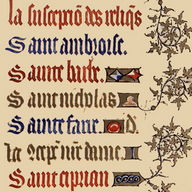 la susceptiõ des reliq̃s
Saint ambroise.
Sainte barbe.
Saint nicholas
Sainte fare. d.
la ɔcep̃. nr̃e dame.
Saint ciprian